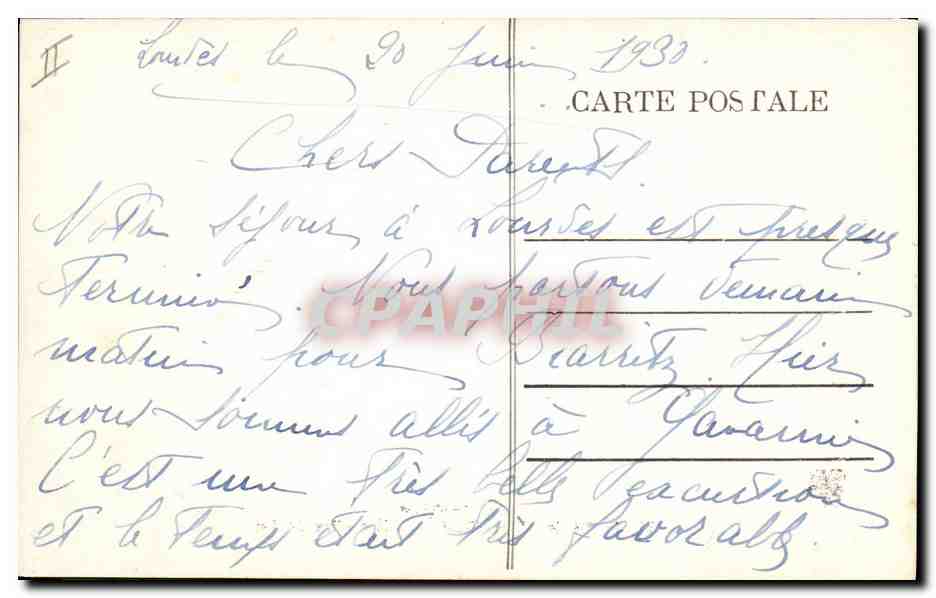 II
Lourdes le 20 Juin 1930.
CARTE POSTALE
Chers Parents.
Notre séjour à Lourdes est presque
terminé. Nous partons demain
matin pour Biarritz. Hier
nous sommes allés à Gavarnie
C'est une très belle excursion
et le temps était très favorable.
CPAPHIL